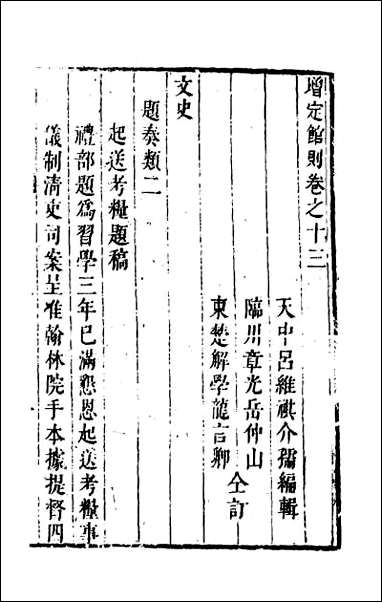 增定館則卷之十三
天中呂維祺介孺編輯
臨川章光岳仲山
東楚解學龍言卿
仝訂
文史
題奏類二
起送考糧題稿
禮部題為習學三年已滿懇恩起送考糧事
儀制清吏司案呈准翰林院手本據提督四